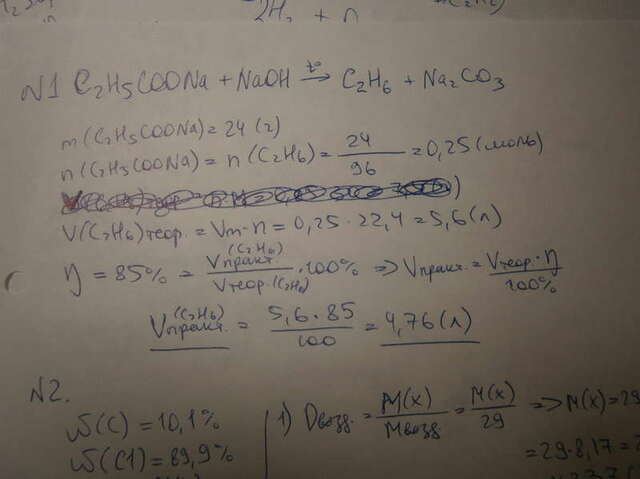 2H₂ + n
N1 C₂H₅COONa + NaOH —t°→ C₂H₆ + Na₂CO₃
m(C₂H₅COONa) = 24 (г)
n(C₂H₅COONa) = n(C₂H₆) = 24/96 = 0,25 (моль)
V(C₂H₆)теор. = Vm · n = 0,25 · 22,4 = 5,6 (л)
η = 85% = Vпракт.(C₂H₆)/Vтеор.(C₂H₆) · 100% ⇒ Vпракт. = Vтеор. · η/100%
Vпракт.(C₂H₆) = 5,6 · 85/100 = 4,76 (л)
N2.
ω(C) = 10,1%
ω(Cl) = 89,9%
1) Dвозд. = M(x)/Mвозд = M(x)/29 ⇒ M(x) = 29
= 29 · 8,17 =